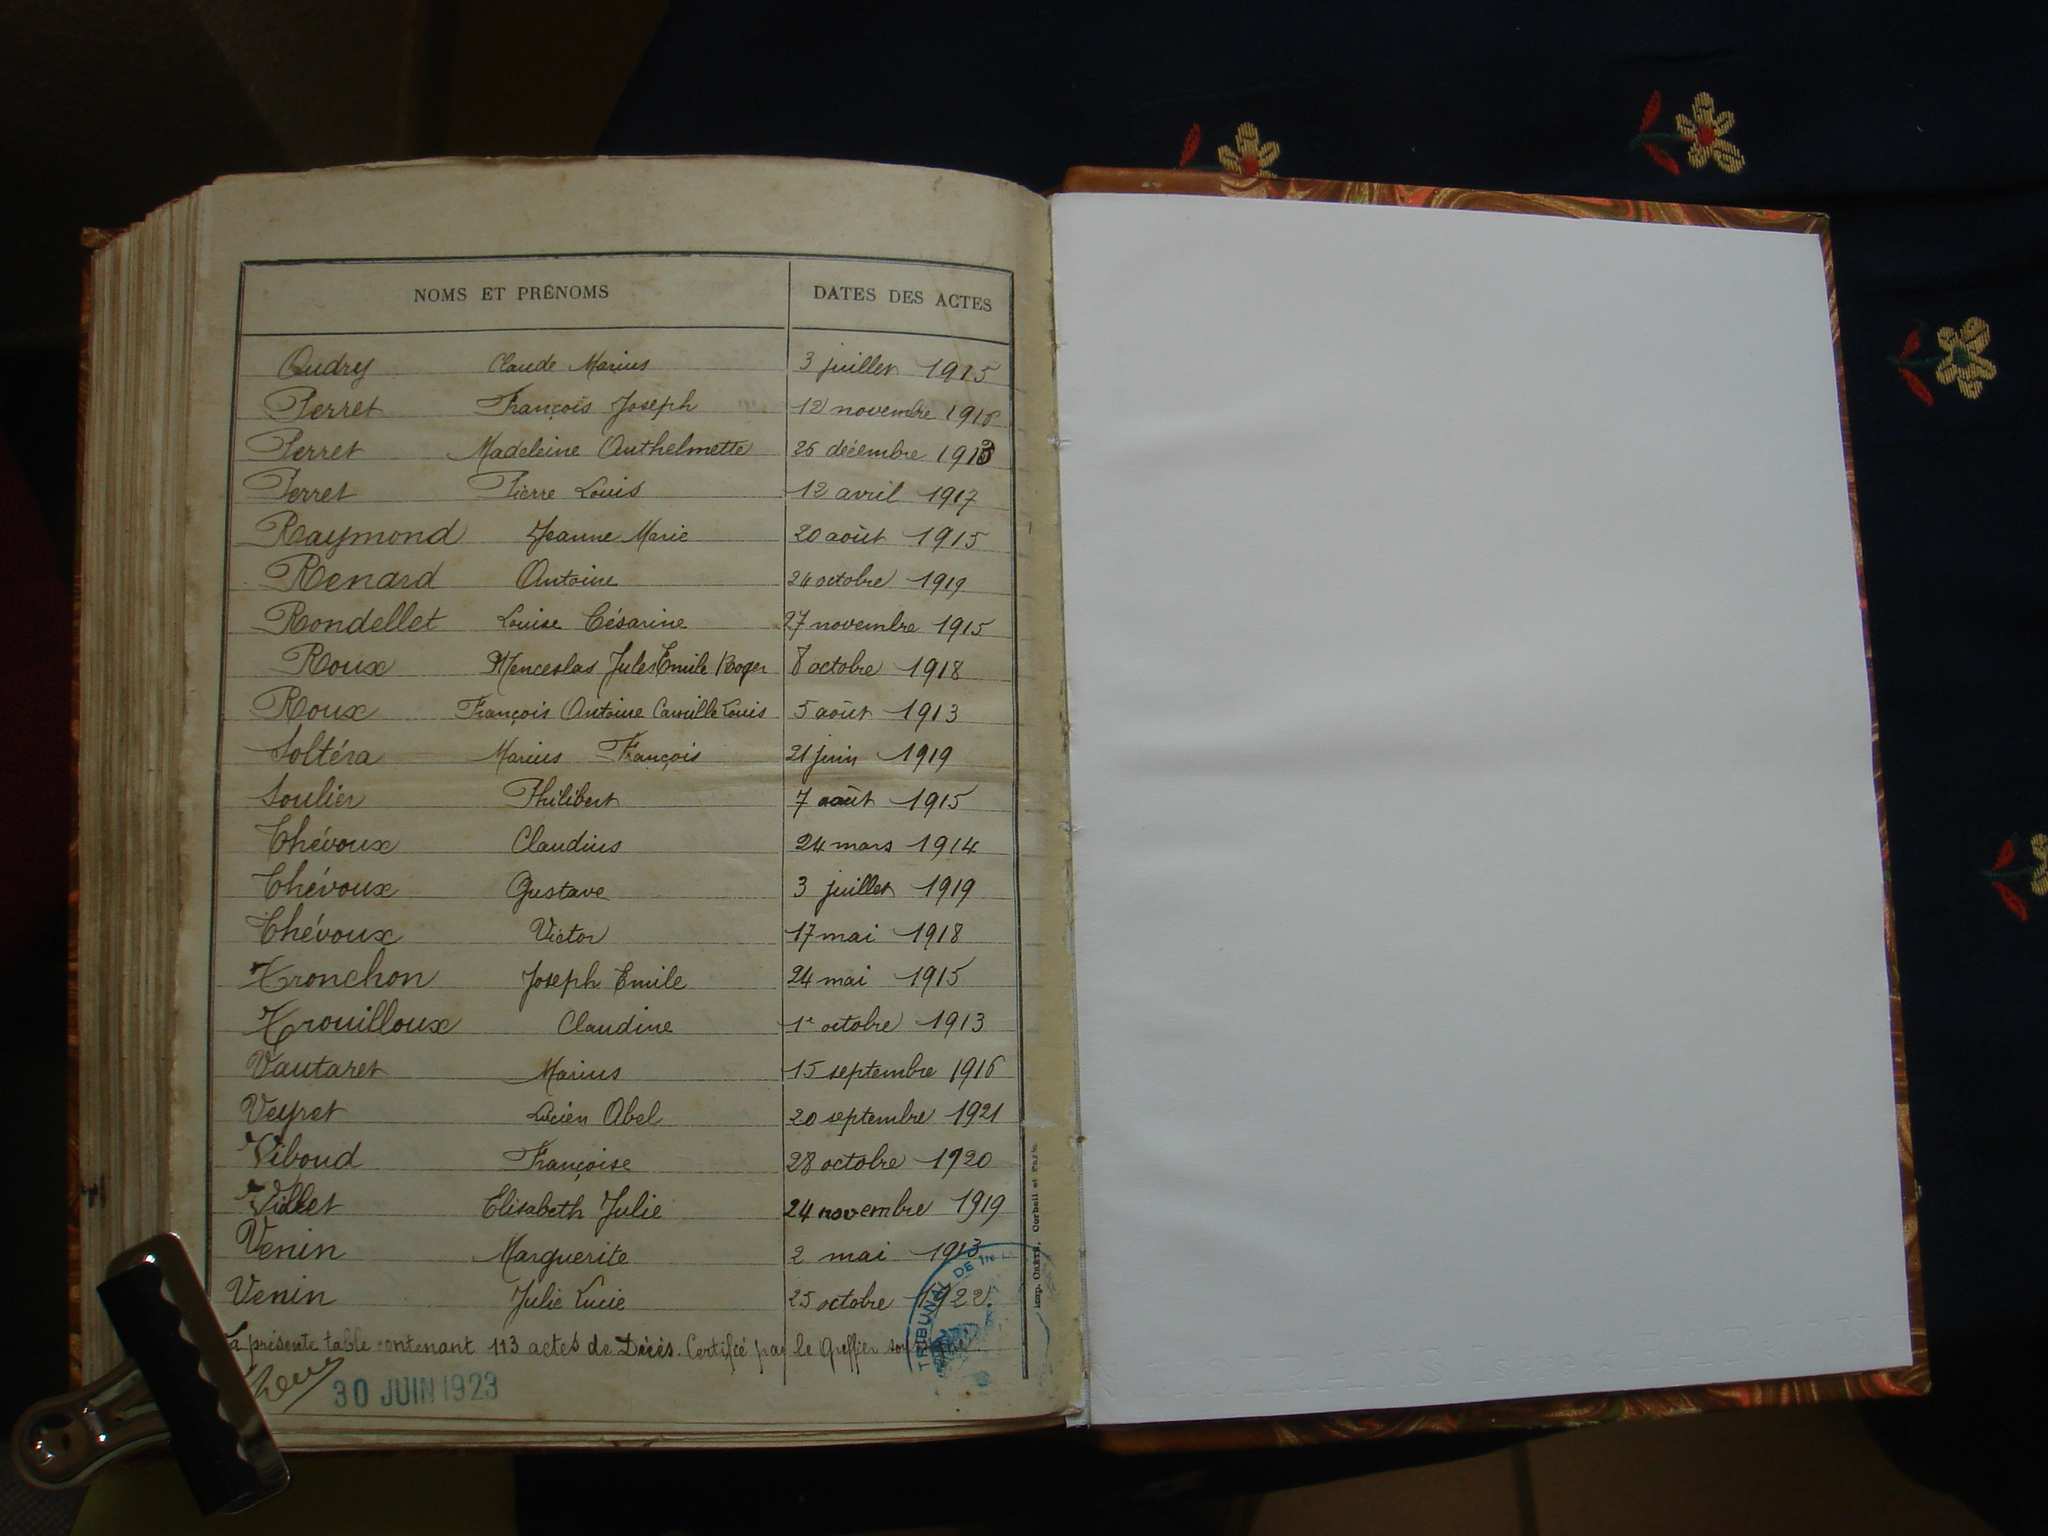 NOMS ET PRÉNOMS DATES DES ACTES
Oudry Claude Marius 3 juillet 1915
Perret François Joseph 12 novembre 1916
Perret Madeleine Anthelmette 26 décembre 1913
Perret Pierre Louis 12 avril 1917
Raymond Jeanne Marie 20 août 1915
Renard Antoine 24 octobre 1919
Rondellet Louise Césarine 27 novembre 1915
Roux Wenceslas Jules Emile Roger 8 octobre 1918
Roux François Antoine Camille Louis 5 août 1913
Soltéra Marius François 21 juin 1919
Soulier Philibert 7 août 1915
Thévoux Claudius 24 mars 1914
Thévoux Gustave 3 juillet 1919
Thévoux Victor 17 mai 1918
Tronchon Joseph Emile 24 mai 1915
Trouilloux Claudine 1er octobre 1913
Vautaret Marius 15 septembre 1916
Veyret Lucien Abel 20 septembre 1921
Viboud Françoise 28 octobre 1920
Viollet Elisabeth Julie 24 novembre 1919
Venin Marguerite 2 mai 1913
Venin Julie Lucie 25 octobre 1922.
La présente table contenant 113 actes de Décès. Certifié par le Greffier soussigné.
30 JUIN 1923
TRIBUNAL DE
Corbeil et